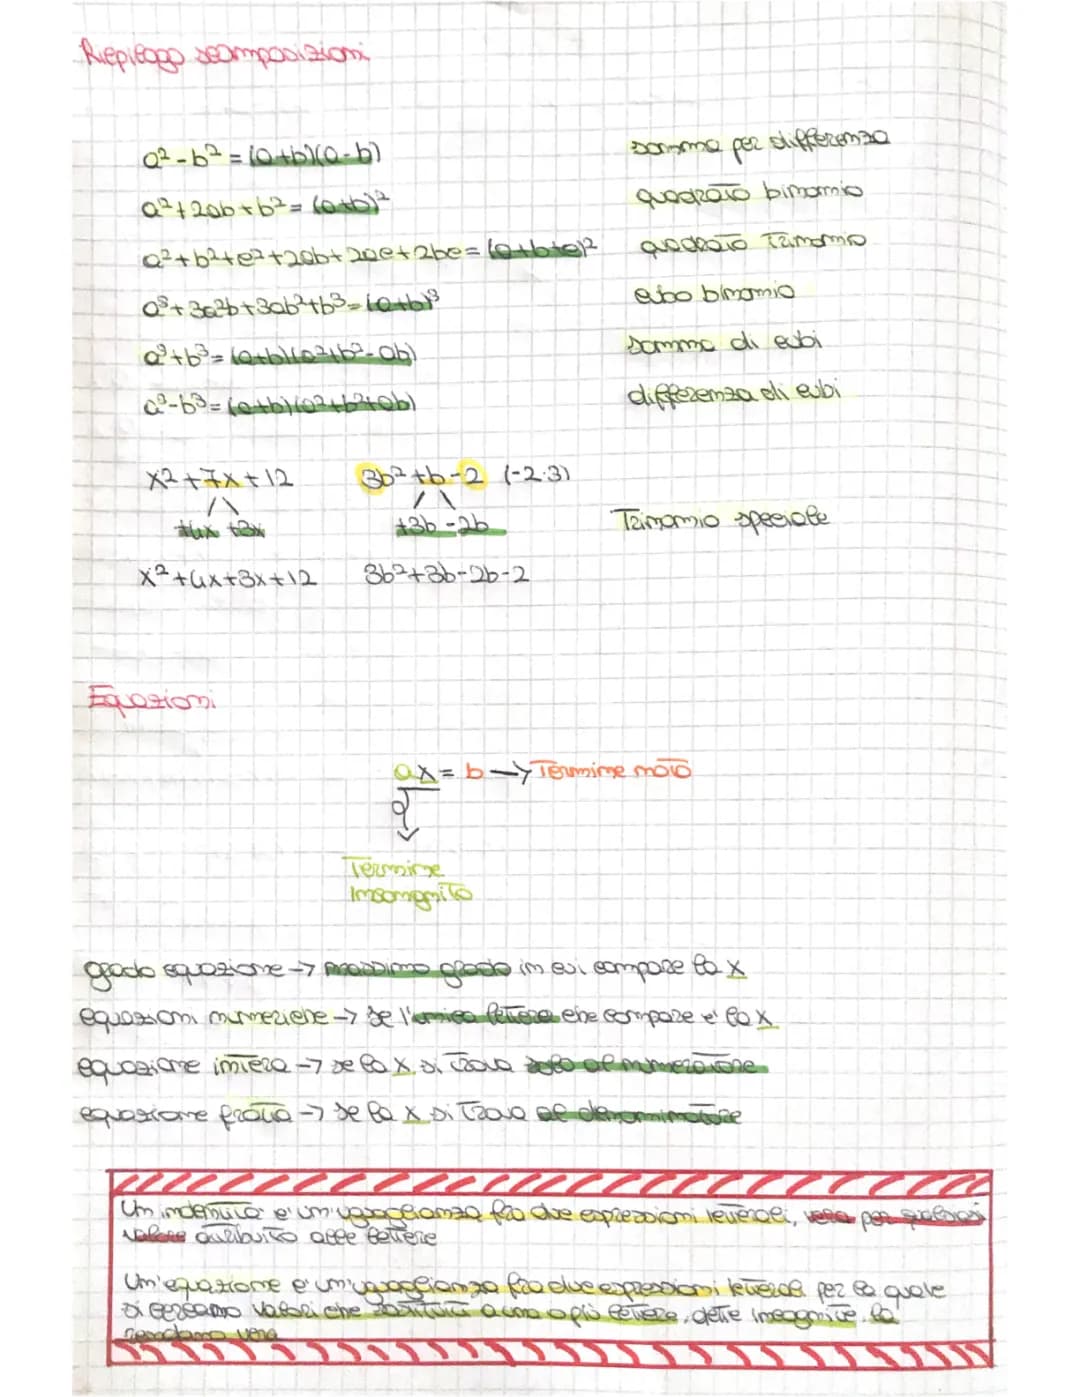 Riepilogo scomposizioni
a² - b² = (a+b)(a-b) somma per differenza
a² + 2ab + b² = (a+b)² quadrato binomio
a² + b² + c² + 2ab + 2ac + 2bc = (a+b+c)² quadrato trinomio
a³ + 3a²b + 3ab² + b³ = (a+b)³ cubo binomio
a³ + b³ = (a+b)(a²+b²-ab) somma di cubi
a³ - b³ = (a+b)(a²+b²+ab) differenza di cubi
x² + 7x + 12 3b² + b - 2 (-2·3)
+4x +3x +3b -2b Trinomio speciale
x² + 4x + 3x + 12 3b² + 3b - 2b - 2
Equazioni
ax = b → Termine noto
Termine
Incognito
grado equazione → massimo grado in cui compare la x
equazioni numeriche → se l'unica lettera che compare e' la x
equazione intera → se la x si trova solo al numeratore
equazione fratta → se la x si trova al denominatore
Un indentità e' un'uguaglianza fra due espressioni letterali, vera per qualsiasi
valore attribuito alle lettere
Un'equazione e' un'uguaglianza fra due espressioni letterali per la quale
si cercano valori che sostituiti a una o più lettere, dette incognite, la
rendano vera